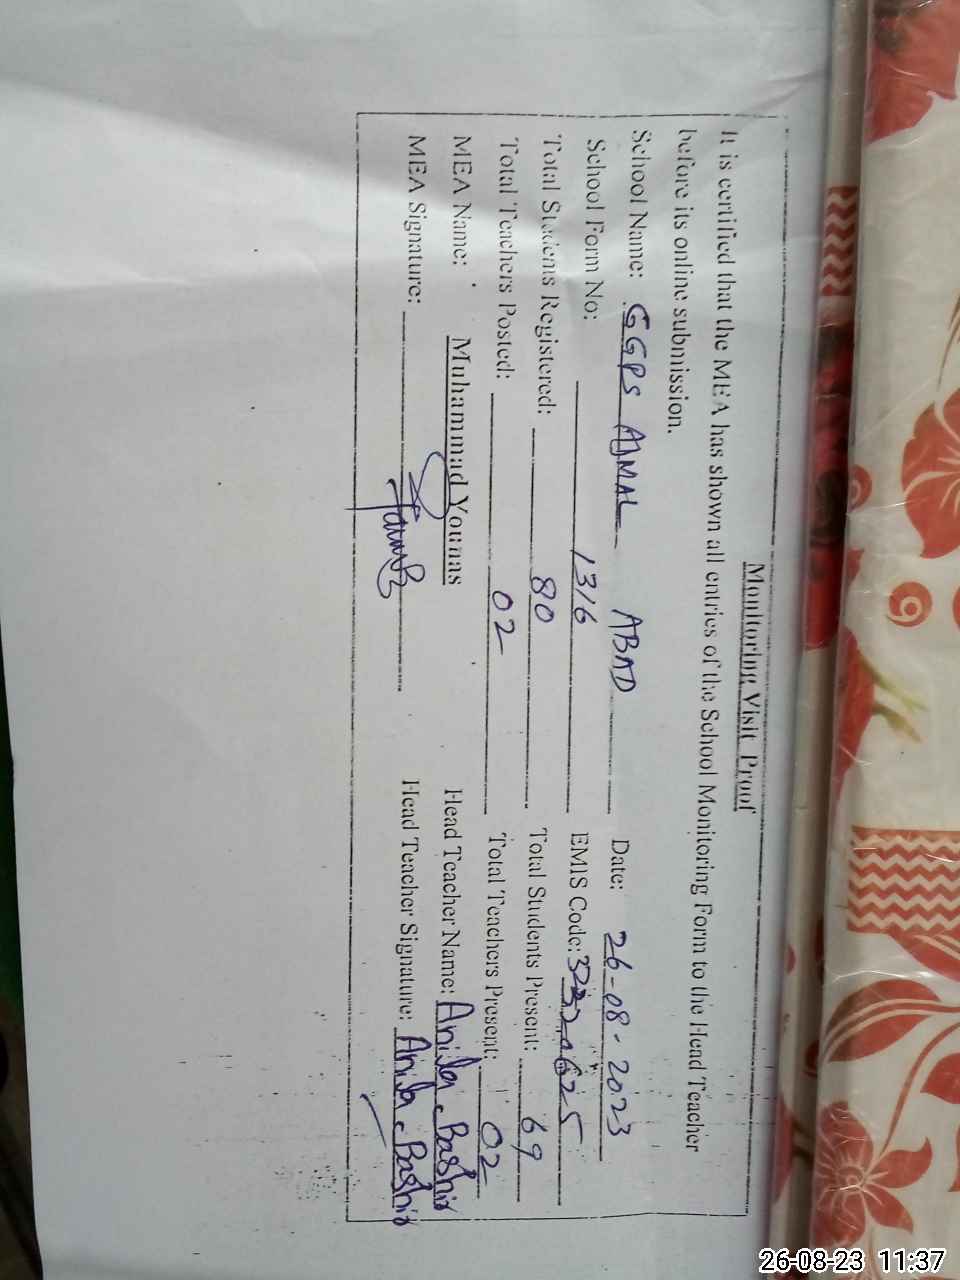 Monitoring Visit Proof
It is certified that the MEA has shown all entries of the School Monitoring Form to the Head Teacher
before its online submission.
School Name: GGPS AJMAL ABAD Date: 26-08-2023
School Form No: 1316 EMIS Code:
Total Students Registered: 80 Total Students Present: 69
Total Teachers Posted: 02 Total Teachers Present: 02
MEA Name: Muhammad Younas Head Teacher Name: Anila Bashir
MEA Signature: Head Teacher Signature: Anila Bashir
26-08-23 11:37